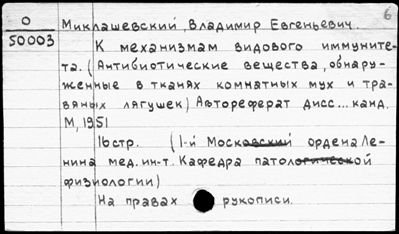 6
О Миклашевский, Владимир Евгеньевич.
50003 К механизмам видового иммуните-
та. (Антибиотические вещества, обнару-
женные в тканях комнатных мух и тра-
вяных лягушек) Автореферат дисс... канд.
М, 1951
16 стр. (1-й Московский ордена Ле-
нина мед. ин-т. Кафедра патологической
физиологии)
На правах рукописи.